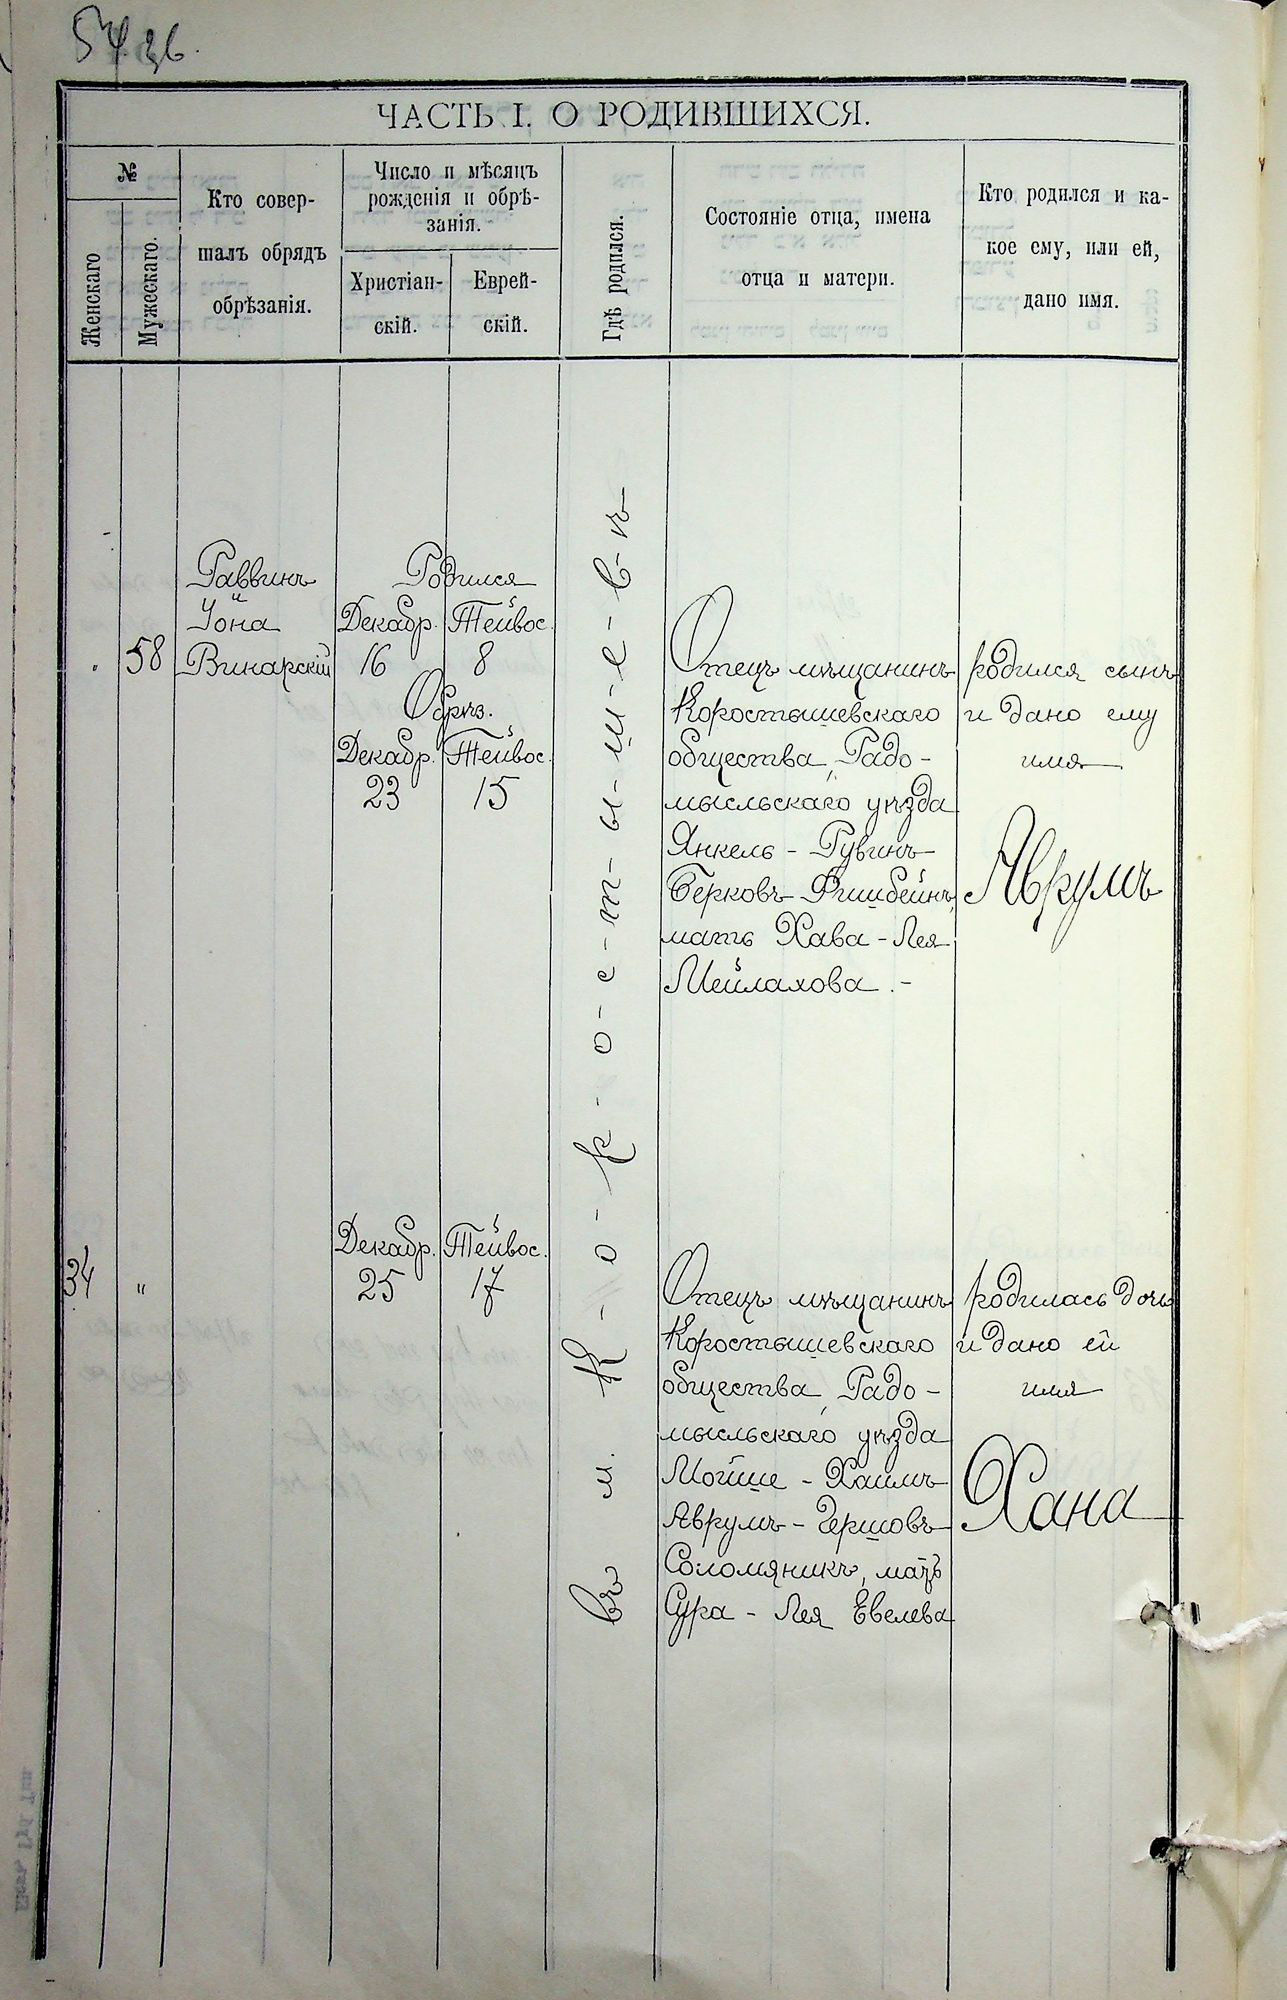 54 зв.
ЧАСТЬ I. О РОДИВШИХСЯ.
№
Женскаго
Мужескаго.
Кто совер-
шалъ обрядъ
обрѣзанія.
Число и мѣсяцъ
рожденія и обрѣ-
занія.
Христіан-
скій.
Еврей-
скій.
Гдѣ родился.
Состояніе отца, имена
отца и матери.
Кто родился и ка-
кое ему, или ей,
дано имя.
"
58
Раввинъ
Іона
Винарскій
Родился
Декабр. Тейвос.
16 8
Обрѣз.
Декабр. Тейвос.
23 15
въ м. К-о-р-о-с-т-ы-ш-е-в-ѣ
Отецъ мѣщанинъ
Коростышевскаго
общества, Радо-
мысльскаго уѣзда
Янкель - Рувинъ
Берковъ Фишбейнъ,
мать Хава - Лея
Мейлахова. -
родился сынъ
и дано ему
имя
Аврумъ
34
"
Декабр. Тейвос.
25 17
Отецъ мѣщанинъ
Коростышевскаго
общества, Радо-
мысльскаго уѣзда
Мойше - Хаимъ
Аврумъ - Гершовъ
Соломяникъ, мать
Сура - Лея Евелева
родилась дочь
и дано ей
имя
Хана